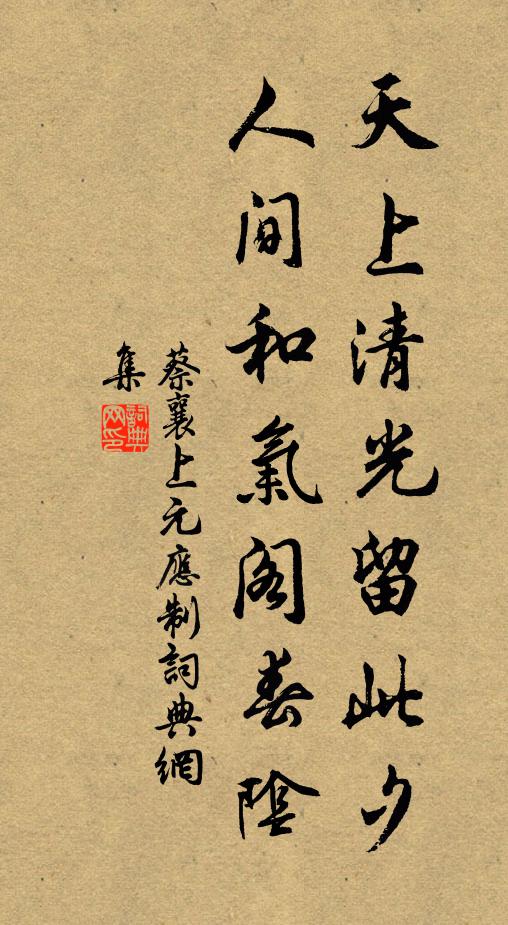 天上清光留此夕
人間和氣阁春陰
蔡襄上元應制詞典網
集
詞典
网印